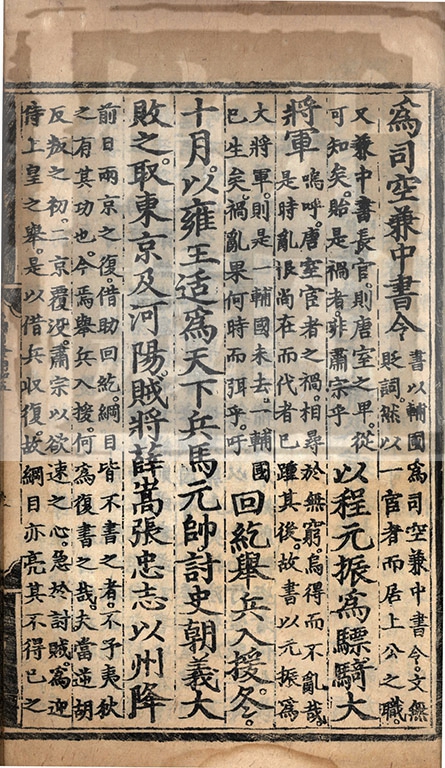 為司空兼中書令
書以輔國為司空兼中書令。文無
貶詞。然以一官者而居上公之職。
又兼中書長官。則唐室之卑。從
可知矣。貽是禍者。非肅宗乎
以程元振為驃騎大
將軍
嗚呼。唐室宦者之禍。相尋於無窮。烏得而不亂哉
是時亂恨尚在而代者已踵其後。故書以元振為
大將軍。則是一輔國未去。一輔國
已生矣。禍亂果何時而弭乎。吁
回紇舉兵入援。冬。
十月。以雍王适為天下兵馬元帥。討史朝義大
敗之。取東京及河陽。賊將薛嵩張忠志以州降
前日兩京之復。借助回紇。綱目皆不書之者。不予夷狄
之有其功也。今焉舉兵入援。何為復書之哉。夫當逆胡
反叛之初。二京覆沒。肅宗以欲速之心。急於討賊。為迎
侍上皇之舉。是以借兵收復。故綱目亦亮其不得已之